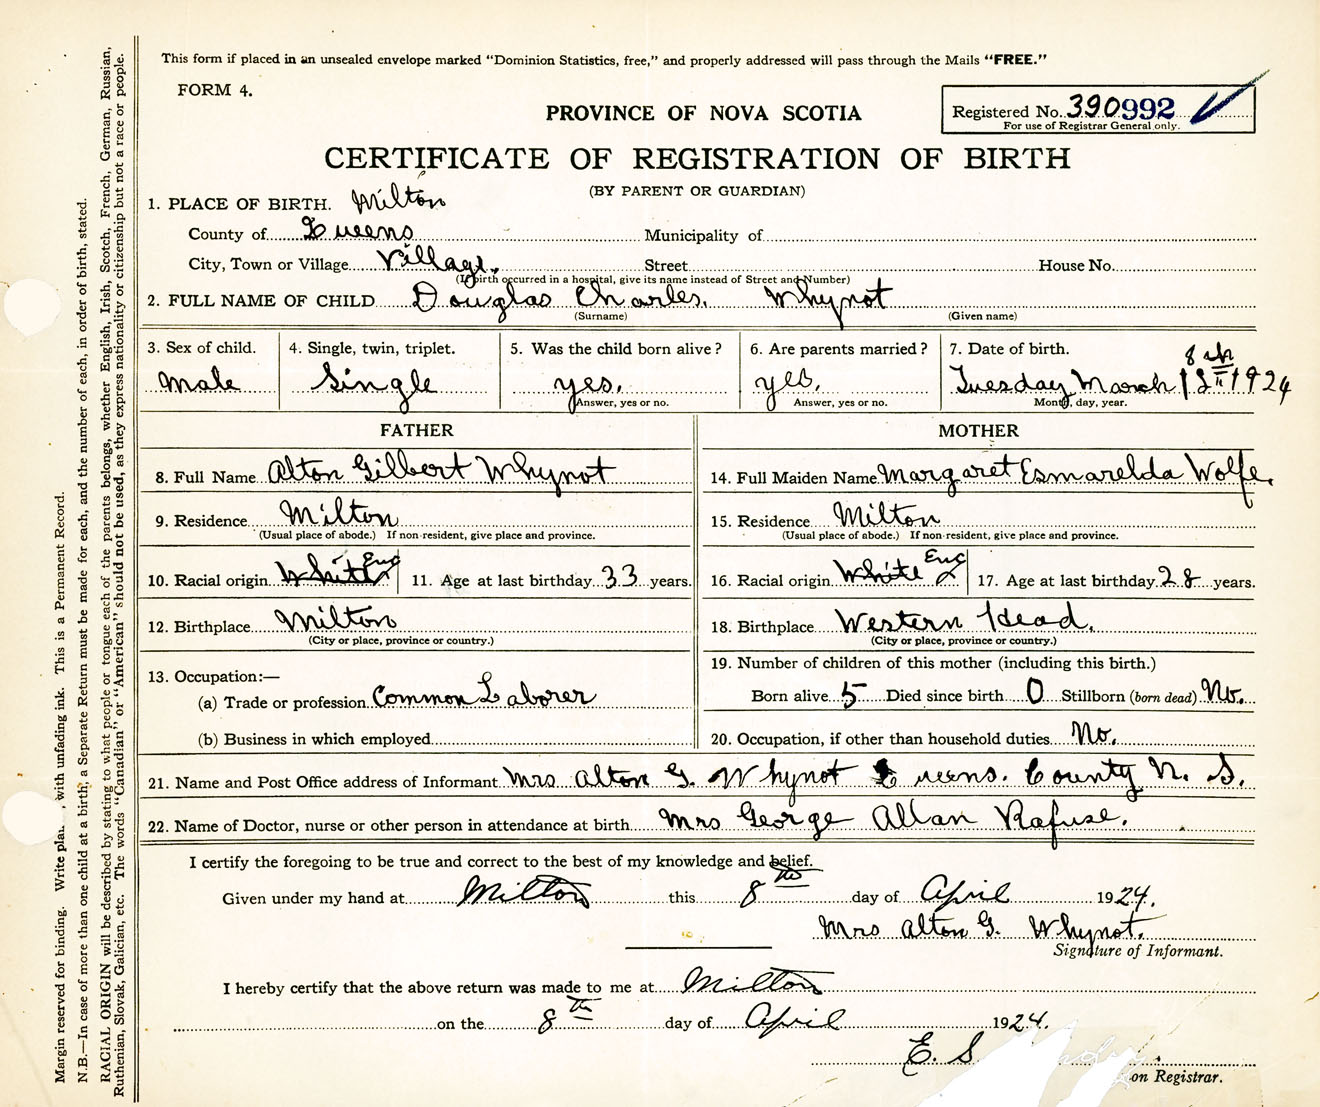 This form if placed in an unsealed envelope marked "Dominion Statistics, free," and properly addressed will pass through the Mails "FREE."
FORM 4.
PROVINCE OF NOVA SCOTIA
Registered No. 390992
For use of Registrar General only.
CERTIFICATE OF REGISTRATION OF BIRTH
(BY PARENT OR GUARDIAN)
1. PLACE OF BIRTH. Milton
County of Queens Municipality of
City, Town or Village Village. Street House No.
(If birth occurred in a hospital, give its name instead of Street and Number)
2. FULL NAME OF CHILD Douglas Charles. Whynot
(Surname) (Given name)
3. Sex of child. 4. Single, twin, triplet. 5. Was the child born alive? 6. Are parents married? 7. Date of birth.
Male Single yes. yes. Tuesday March 1924
Answer, yes or no. Answer, yes or no. Month, day, year.
FATHER MOTHER
8. Full Name Alton Gilbert Whynot 14. Full Maiden Name Margaret Esmarelda Wolfe.
9. Residence Milton 15. Residence Milton
(Usual place of abode.) If non-resident, give place and province. (Usual place of abode.) If non-resident, give place and province.
10. Racial origin White Eng 11. Age at last birthday 33 years. 16. Racial origin White Eng 17. Age at last birthday 28 years.
12. Birthplace Milton 18. Birthplace Western Head.
(City or place, province or country.) (City or place, province or country.)
13. Occupation:— 19. Number of children of this mother (including this birth.)
(a) Trade or profession Common Laborer Born alive 5 Died since birth 0 Stillborn (born dead) No.
(b) Business in which employed 20. Occupation, if other than household duties No.
21. Name and Post Office address of Informant Mrs Alton G. Whynot Queens. County N. S.
22. Name of Doctor, nurse or other person in attendance at birth Mrs George Allan Rafuse.
I certify the foregoing to be true and correct to the best of my knowledge and belief.
Given under my hand at Milton this 8th day of April 1924.
Mrs Alton G. Whynot.
Signature of Informant.
I hereby certify that the above return was made to me at Milton
on the 8th day of April 1924.
E. S
on Registrar.
Margin reserved for binding. Write plai , with unfading ink. This is a Permanent Record.
N.B.—In case of more than one child at a birth, a Separate Return must be made for each, and the number of each, in order of birth, stated.
RACIAL ORIGIN will be described by stating to what people or tongue each of the parents belongs, whether English, Irish, Scotch, French, German, Russian,
Ruthenian, Slovak, Galician, etc. The words "Canadian" or "American" should not be used, as they express nationality or citizenship but not a race or people.